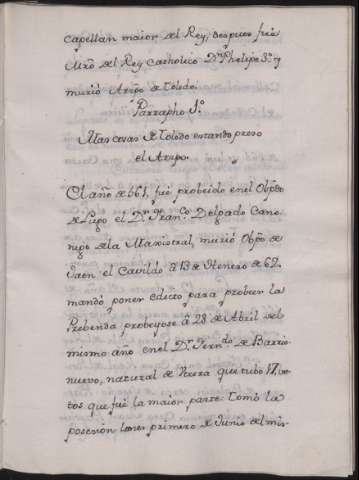 Capellan maior del Rey, despues fue
Mrõ del Rey catholico Dn Phelipe 3º. y
murió Arzpo de Toledo.
Parrapho 5º.
Mas cosas de Toledo estando preso
el Arzpo.
El año de 561, fue probeido en el Obpdo
de Lugo el Dr. Franco Delgado Cano-
nigo de la Maxistral, murió Obpo de
Jaen el Cavildo á 13 de Henero de 62.
mandó poner edicto para probeer la
Prebenda probeyose á 28 de Abril del
mismo año en el Dr. Ferndo de Barrio
nuevo, natural de que tubo 17. vo-
tos que fué la maior parte: tomó la
posesion lunes primero de Junio del mis-